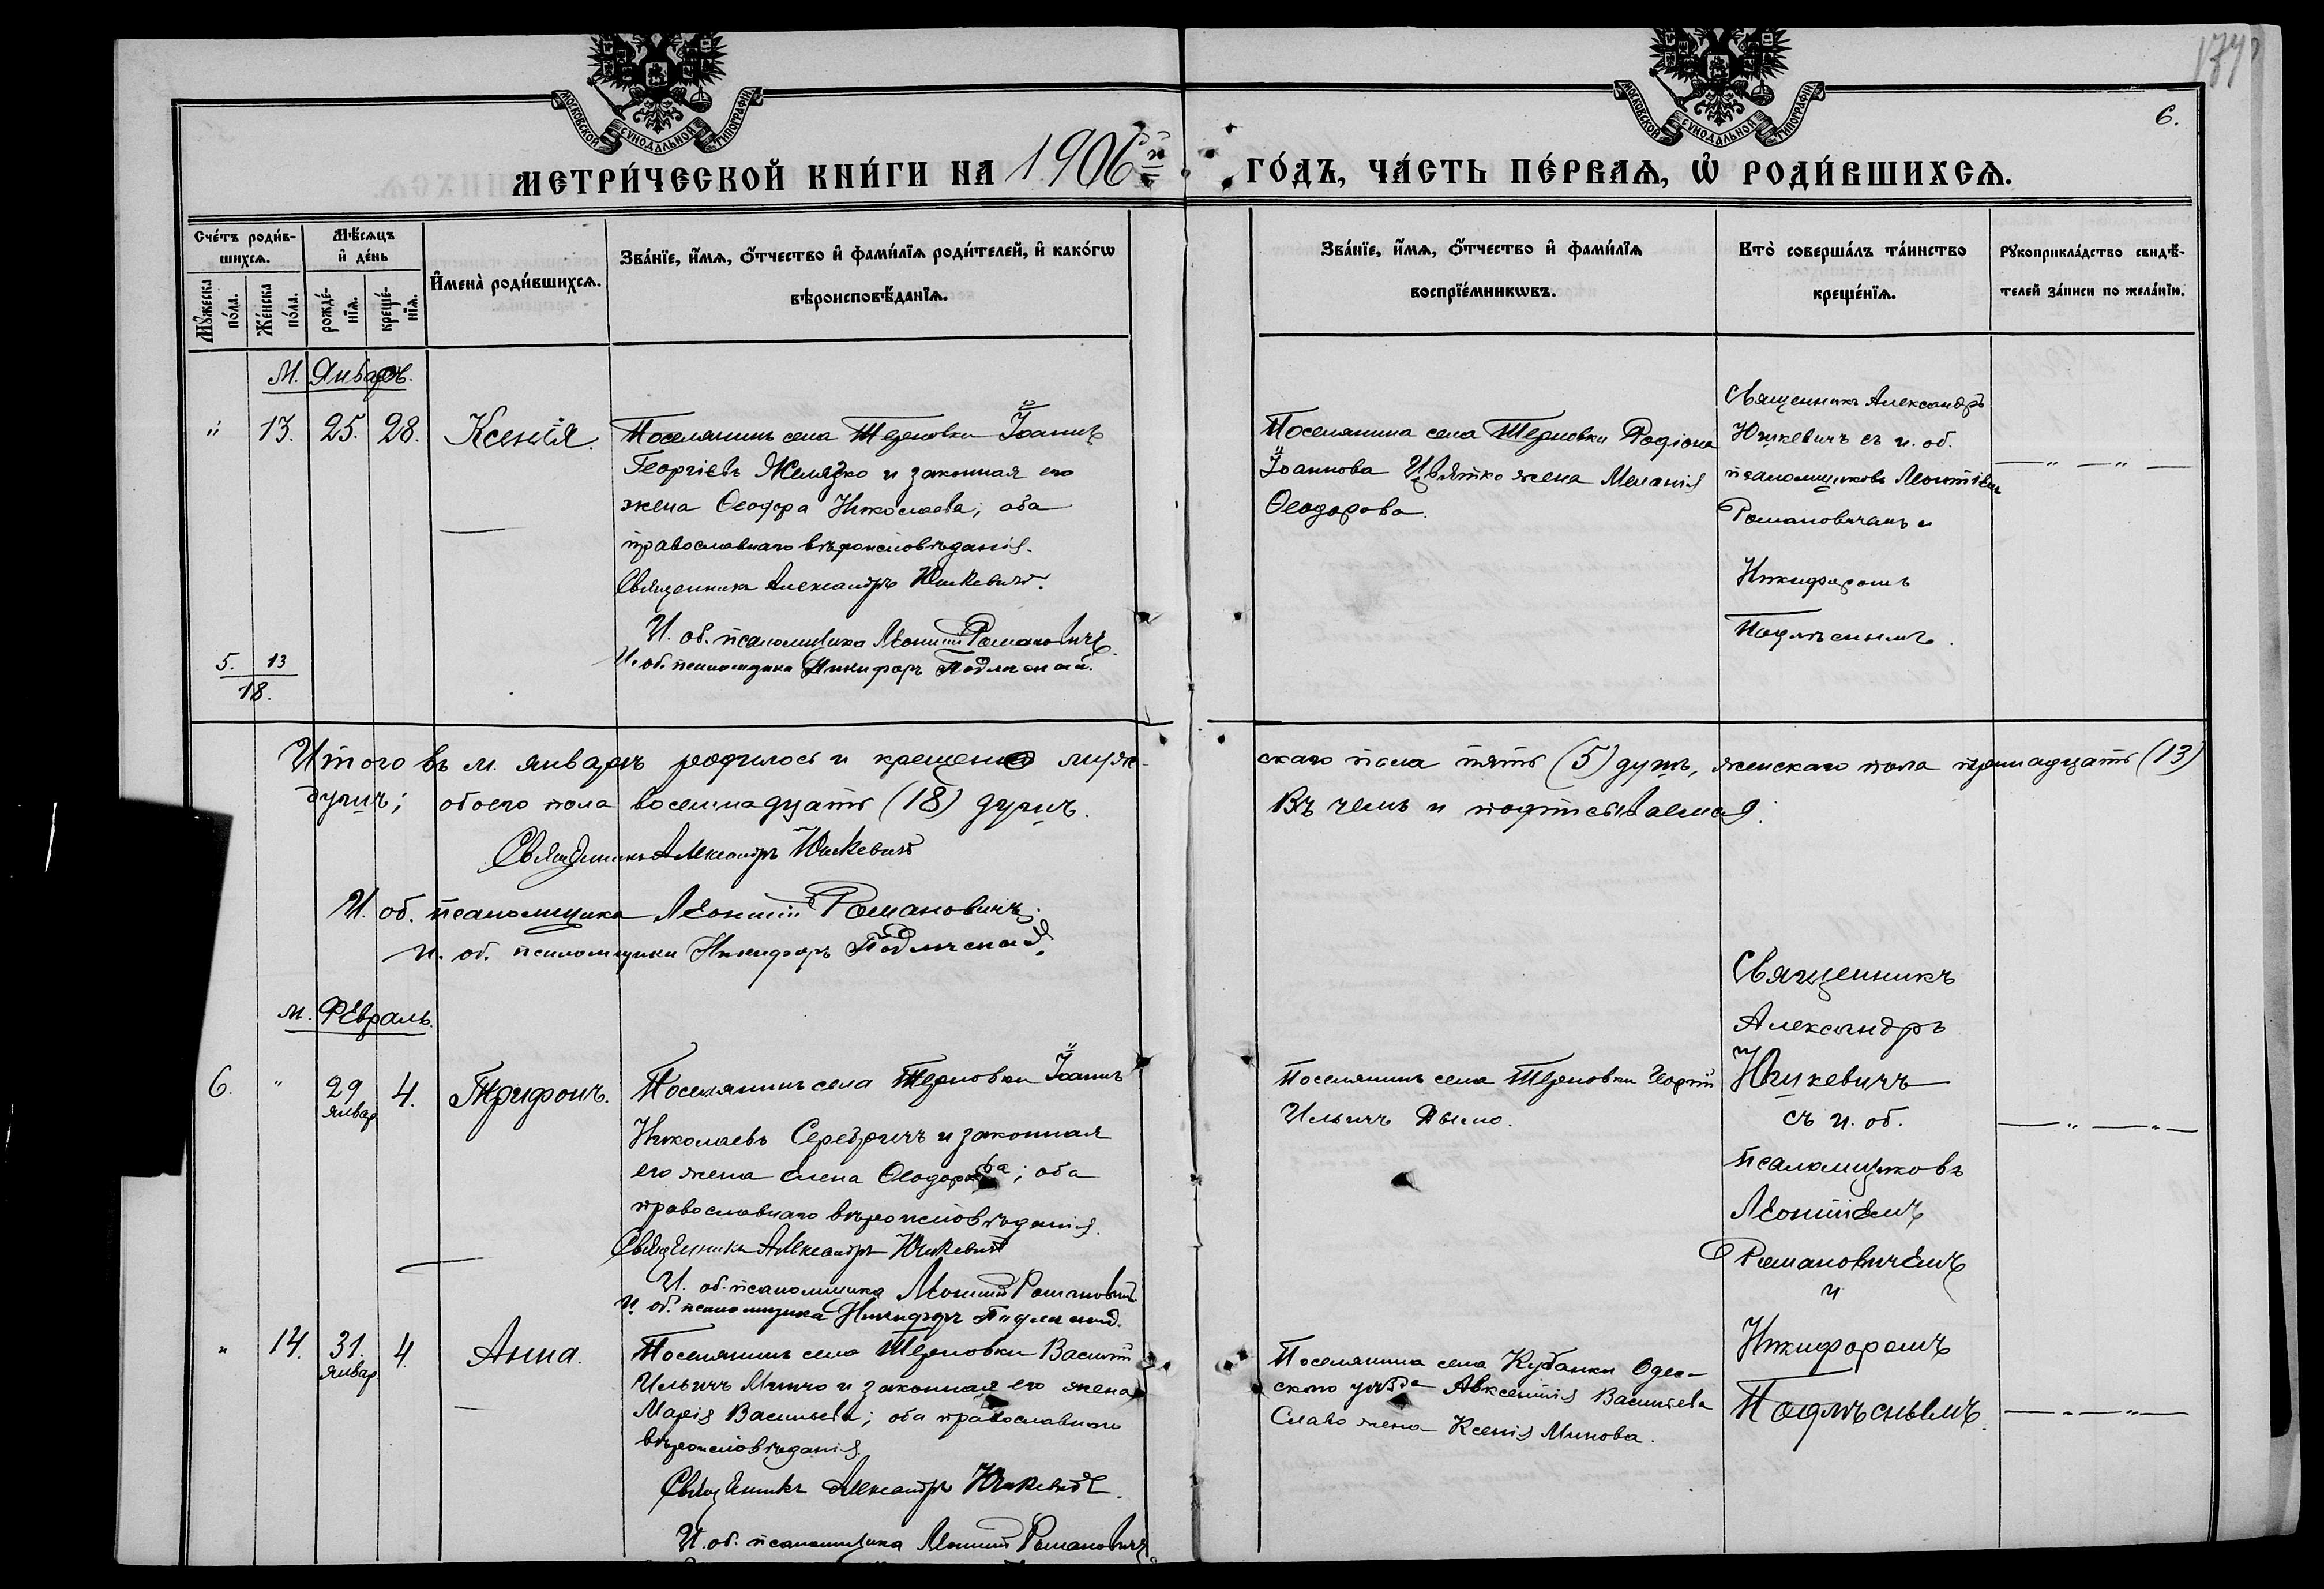 174
6.
МОСКОВСКОЙ СУНОДАЛЬНОЙ ТИПОГРАФІИ
МОСКОВСКОЙ СУНОДАЛЬНОЙ ТИПОГРАФІИ
МЕТРИ́ЧЕСКОЙ КНИ́ГИ НА 1906й ГО́ДЪ, ЧА́СТЬ ПЕ́РВАѦ, Ѽ РОДИ́ВШИХСѦ.
Счетъ родив-
шихся.
Мꙋжеска пола.
Женска пола.
Мѣсяцъ и день
рожде-
нїя.
креще-
нїя.
Имена родившихся.
Званїе, имя, отчество и фамилїя родителей, и какогѡ
вѣроисповѣданїя.
Званїе, имя, отчество и фамилїя
воспрїемникѡвъ.
Кто совершалъ таинство
крещенїя.
Рꙋкоприкладство свидѣ-
телей записи по желанїю.
М. Январь.
" 13. 25. 28. Ксенія.
Поселянинъ села Терновки Іоаннъ
Георгіевъ Желязко и законная его
жена Ѳеодора Николаева; оба
православнаго вѣроисповѣданія.
Священникъ Александръ Юшкевичъ.
И. об. псаломщика Леонтій Романовичъ.
И. об. псаломщика Никифоръ Подлѣсный.
5. 13
18.
Поселянина села Терновки Родіона
Іоаннова Цвятко жена Меланія
Ѳеодорова.
Священникъ Александръ
Юшкевичъ съ и. об.
псаломщиковъ Леонтіемъ
Романовичемъ и
Никифоромъ
Подлѣснымъ.
— " — " —
Итого въ м. январѣ родилось и крещено муж-
скаго пола пять (5) душъ, женскаго пола тринадцать (13)
душъ; обоего пола восемнадцать (18) душъ.
Въ чемъ и подписываемся:
Священникъ Александръ Юшкевичъ
И. об. псаломщика Леонтій Романовичъ.
И. об. псаломщика Никифоръ Подлѣсный.
м. Февраль.
6. " 29 январ 4. Трифонъ.
Поселянинъ села Терновки Іоаннъ
Николаевъ Середричъ и законная
его жена Елена Ѳеодорова; оба
православнаго вѣроисповѣданія.
Священникъ Александръ Юшкевичъ
И. об. псаломщика Леонтій Романовичъ.
И. об. псаломщика Никифоръ Подлѣсный.
Поселянинъ села Терновки Георгій
Ильичъ
Священникъ
Александръ
Юшкевичъ
съ и. об.
псаломщиковъ
Леонтіемъ
Романовичемъ
и
Никифоромъ
Подлѣснымъ.
— " — " —
" 14. 31. январ 4. Анна.
Поселянинъ села Терновки Василій
Ильичъ Минчо и законная его жена
Марія Васильева; оба православнаго
вѣроисповѣданія.
Священникъ Александръ Юшкевичъ.
И. об. псаломщика Леонтій Романовичъ
Поселянина села Кубанки Одес-
скаго уѣзда Авксентія Васильева
Славо жена Ксенія Минова.
— " — " —